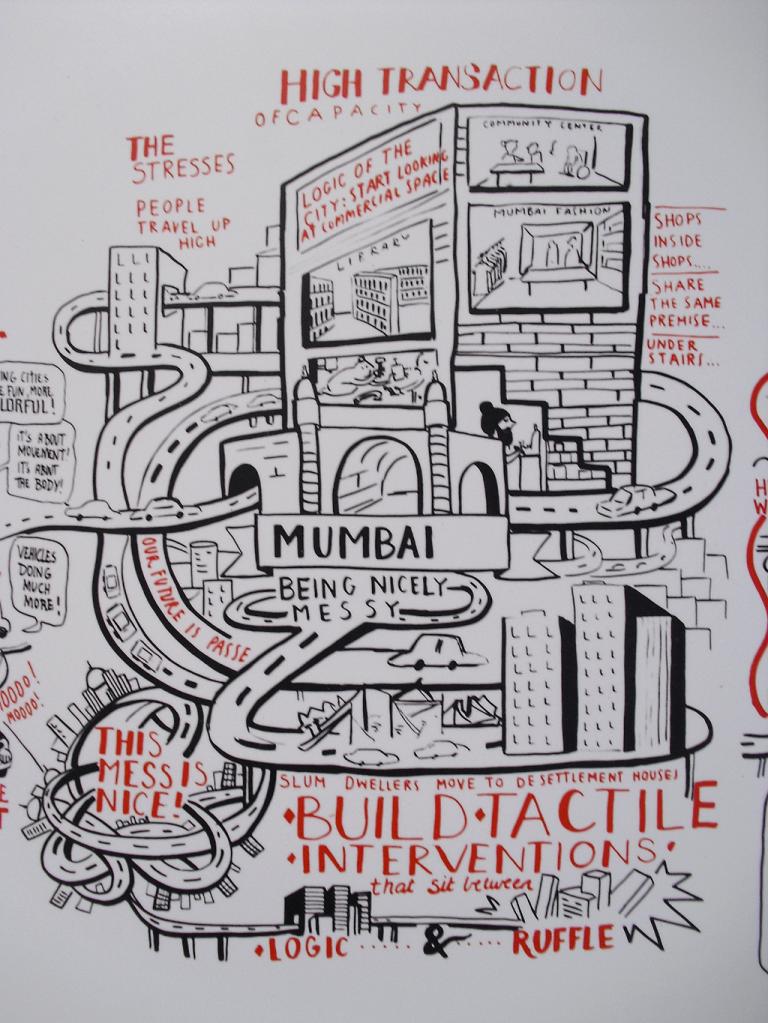 HIGH TRANSACTION
OF CAPACITY
THE
STRESSES
PEOPLE
TRAVEL UP
HIGH
LOGIC OF THE
CITY: START LOOKING
AT COMMERCIAL SPACE
COMMUNITY CENTER
MUMBAI FASHION
LIBRARY
SHOPS
INSIDE
SHOPS....
SHARE
THE SAME
PREMISE...
UNDER
STAIRS...
CITIES
FUN, MORE
IT'S ABOUT
MOVEMENT!
IT'S ABOUT
THE BODY!
VEHICLES
DOING
MUCH
MORE!
MUMBAI
BEING NICELY
MESSY
OUR FUTURE IS PASSE
MOOOO!
THIS
MESS IS
NICE!
SLUM DWELLERS MOVE TO DESETTLEMENT HOUSES
•BUILD•TACTILE
•INTERVENTIONS•
that sit between
•LOGIC ..... & ..... RUFFLE